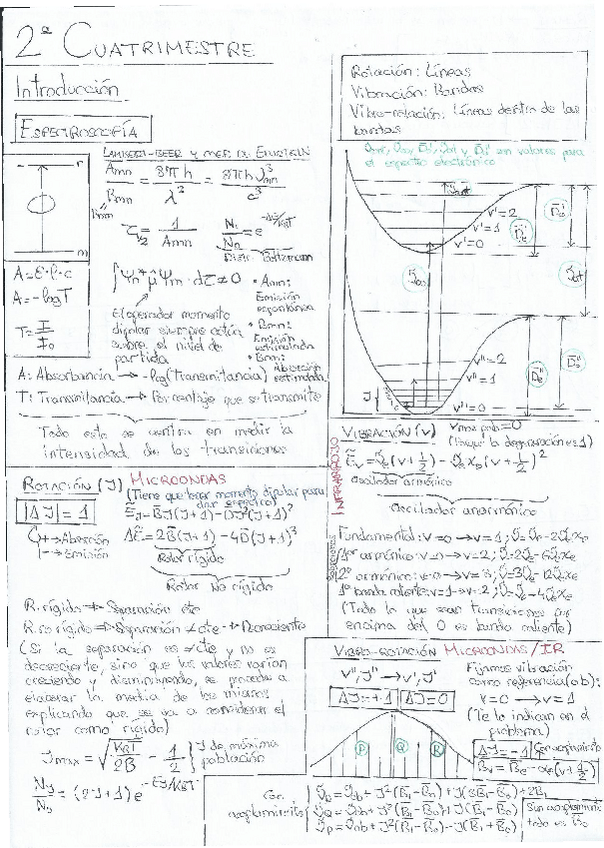 2º CUATRIMESTRE
Introducción
ESPECTROSCOPÍA
LAMBERT-BEER y MÉT. DE EINSTEIN
Amn/Bmn = 8πh/λ³ = 8πhν³mn/c³
n
m
τ1/2 = 1/Amn
Distr. Boltzmann
A=ε·l·c
A=-logT
T=I/I₀
El operador momento
dipolar siempre actúa
sobre el nivel de
partida
• Amn:
Emisión
espontánea
• Bmn:
Emisión
estimulada
• Bnm:
Absorción
estimulada
A: Absorbancia → -log(Transmitancia)
T: Transmitancia → Porcentaje que se transmite
Todo esto se centra en medir la
intensidad de las transiciones
Rotación: Líneas
Vibración: Bandas
Vibro-rotación: Líneas dentro de las
bandas
son valores para
el espectro electrónico
v'=2
v'=1
v'=0
v''=2
v''=1
v''=0
ROTACIÓN (J) MICROONDAS
(Tiene que tener momento dipolar para
dar espectro)
|ΔJ| = 1
+ → Absorción
- → Emisión
ẼJ = B̃J(J+1) - D̃J²(J+1)²
ΔẼ = 2B̃(J+1) - 4D̃(J+1)³
Rotor rígido
Rotor no rígido
R. rígido → Separación cte
R. no rígido → Separación ≠ cte → Decreciente
(Si la separación es ≠ cte y no es
decreciente, sino que los valores varían
creciendo y disminuyendo, se procede a
elaborar la media de los mismos
explicando que se va a considerar el
rotor como rígido)
Jmax = √(KBT/2B) - 1/2 } J de máxima
población
NJ/N0 = (2J+1)e^(-EJ/KBT)
INFRARROJO
VIBRACIÓN (v)
(Porque la degeneración es 1)
Ẽv = ν̃e(v+1/2) - ν̃exe(v+1/2)²
Oscilador armónico
Oscilador anarmónico
Fundamental: v=0 → v=1; ν̃=ν̃e-2ν̃exe
1er armónico: v=0 → v=2; ν̃=2ν̃e-6ν̃exe
2º armónico: v=0 → v=3; ν̃=3ν̃e-12ν̃exe
1ª banda caliente: v=1 → v=2; ν̃=ν̃e-4ν̃exe
(Todo lo que sean transiciones por
encima del 0 es banda caliente)
VIBRO-ROTACIÓN MICROONDAS/IR
v'', J'' → v', J'
ΔJ=+1
ΔJ=0
P
Q
R
Fijamos vibración
como referencia (ob):
v=0 → v=1
(Te lo indican en el
problema)
ΔJ=-1
Con acoplamiento
B̃v = B̃e - αe(v+1/2)
Con
acoplamiento
ν̃R = ν̃ob + J²(B̃1-B̃0) + J(3B̃1-B̃0) + 2B̃1
ν̃Q = ν̃ob + J²(B̃1-B̃0) + J(B̃1-B̃0)
ν̃P = ν̃ob + J²(B̃1-B̃0) - J(B̃1+B̃0)
Sin acoplamiento
todo es B̃0